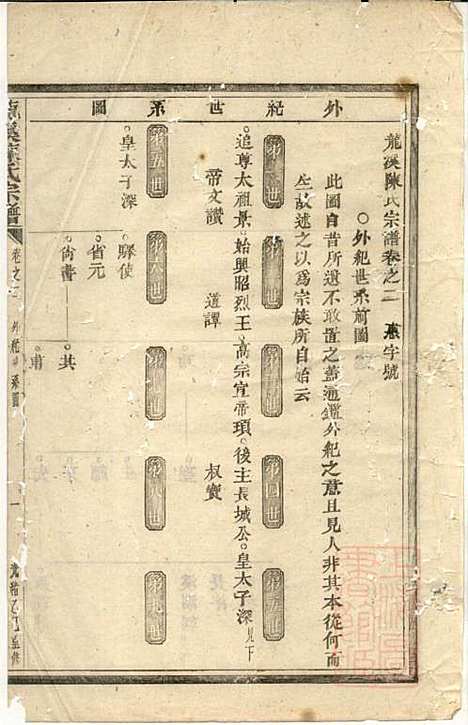 龍溪陳氏宗譜卷之二 惠字號
○外紀世系前圖
此圖自昔所遺不敢置之蓋通鑑外紀之意且見人非其本從何而
生故述之以爲宗族所自始云
外紀世系圖
第一世 第二世 第三世 第四世 第五世
追尊太祖景○始興昭烈王○高宗宣帝頊○後主長城公○皇太子深見下
帝文讚 道譚 叔寶
第五世 第六世 第七世 第八世 第九世
○皇太子深 ○驛使
○省元
○尚書 ○其
○甫
龍溪陳氏宗譜 卷之二 外紀世系圖 一 光緒乙巳重修